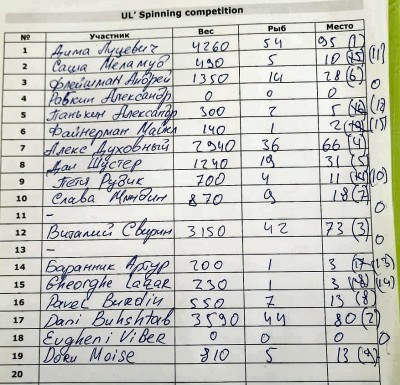 UL' Spinning competition
№ Участник Вес Рыб Место
1 Дима Луцевич 4260 54 95 (1)
2 Саша Меламуд 490 5 10 (11)
3 Флейшман Андрей 1350 14 28 (6)
4 Равкин Александр 0 0 0 0
5 Панькин Александр 300 2 5 (12)
6 Файнерман Майкл 140 1 2 (15)
7 Алекс Духовный 2940 36 66 (4)
8 Дан Шустер 1240 19 31 (5)
9 Петя Рудик 700 4 11 (10)
10 Слава 870 9 18 (7)
11 - 0
12 Виталий Свирин 3150 42 73 (3)
13 - 0
14 Баранник Артур 200 1 3 (13)
15 Gheorghe Lazar 230 1 3 (14)
16 Pavel Burdin 550 7 13 (8)
17 Dani Buhshtab 3590 44 80 (2)
18 Evgheni Viber 0 0 0 0
19 Doru Moise 810 5 13 (9)
20